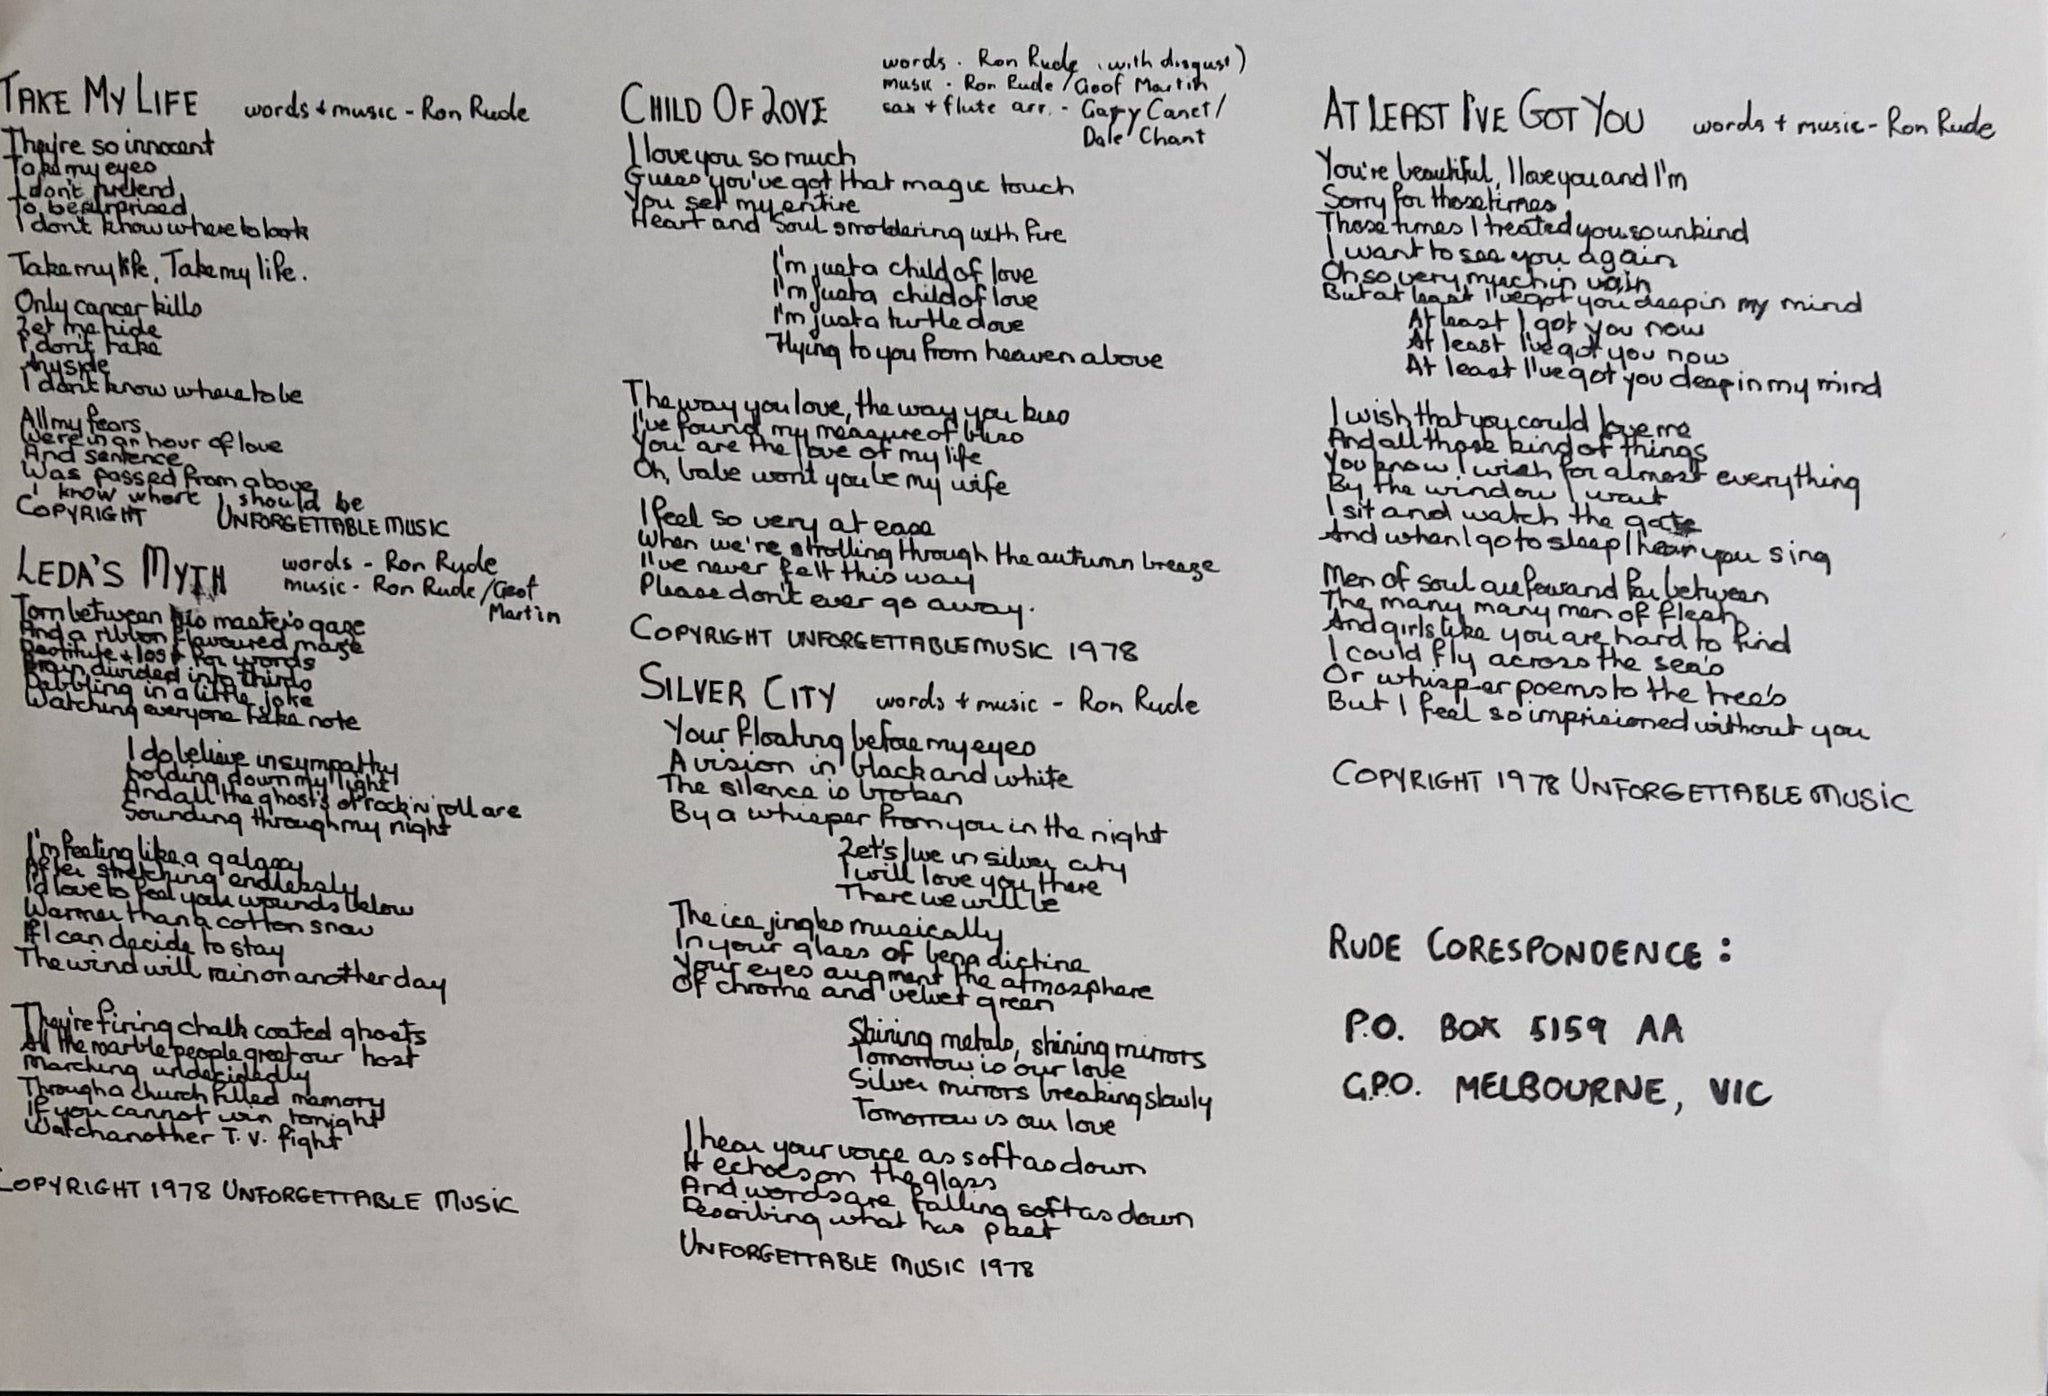 TAKE MY LIFE words + music - Ron Rude
They're so innocent
To be my eyes
I don't pretend
To be surprised
I don't know where to look
Take my life, Take my life.
Only cancer kills
Let me hide
I don't take
Any side
I don't know where to be
All my fears
Were in an hour of love
And sentence
Was passed from above
I know where I should be
COPYRIGHT UNFORGETTABLE MUSIC
LEDA'S MYTH words - Ron Rude
music - Ron Rude/Geof
Martin
Torn between his master's gaze
And a ribbon flavoured maze
Destitute + lost for words
Brain divided into thirds
Dabbling in a little joke
Watching everyone take note
I do believe in sympathy
holding down my light
And all the ghosts of rock 'n' roll are
Sounding through my night
I'm feeling like a galaxy
After stretching endlessly
I'd love to feel your wounds below
Warmer than a cotton snow
If I can decide to stay
The wind will rain on another day
They're firing chalk coated ghosts
All the marble people greet our host
Marching undecidedly
Through a church filled memory
If you cannot win tonight
Watch another T.V. fight
COPYRIGHT 1978 UNFORGETTABLE MUSIC
CHILD OF LOVE words - Ron Rude (with disgust)
music - Ron Rude/Geof Martin
sax + flute arr. - Gary Canet/
Dale Chant
I love you so much
Guess you've got that magic touch
You set my entire
Heart and Soul smoldering with fire
I'm just a child of love
I'm just a child of love
I'm just a turtle dove
Flying to you from heaven above
The way you love, the way you kiss
I've found my measure of bliss
You are the love of my life
Oh, babe won't you be my wife
I feel so very at ease
When we're strolling through the autumn breeze
I've never felt this way
Please don't ever go away.
COPYRIGHT UNFORGETTABLE MUSIC 1978
SILVER CITY words + music - Ron Rude
Your floating before my eyes
A vision in black and white
The silence is broken
By a whisper from you in the night
Let's live in silver city
I will love you there
There we will be
The ice jingles musically
In your glass of benedictine
Your eyes augment the atmosphere
Of chrome and velvet green
Shining metals, shining mirrors
Tomorrow is our love
Silver mirrors breaking slowly
Tomorrow is our love
I hear your voice as soft as down
It echoes on the glass
And words are falling soft as down
Describing what has past
UNFORGETTABLE MUSIC 1978
AT LEAST I'VE GOT YOU words + music - Ron Rude
You're beautiful, I love you and I'm
Sorry for those times
Those times I treated you so unkind
I want to see you again
Oh so very much in vain
But at least I've got you deep in my mind
At least I got you now
At least I've got you now
At least I've got you deep in my mind
I wish that you could love me
And all those kind of things
You know I wish for almost everything
By the window I wait
I sit and watch the gate
And when I go to sleep I hear you sing
Men of soul are few and far between
The many many men of flesh
And girls like you are hard to find
I could fly across the sea's
Or whisper poems to the tree's
But I feel so imprisioned without you
COPYRIGHT 1978 UNFORGETTABLE MUSIC
RUDE CORESPONDENCE:
P.O. BOX 5159 AA
G.P.O. MELBOURNE, VIC